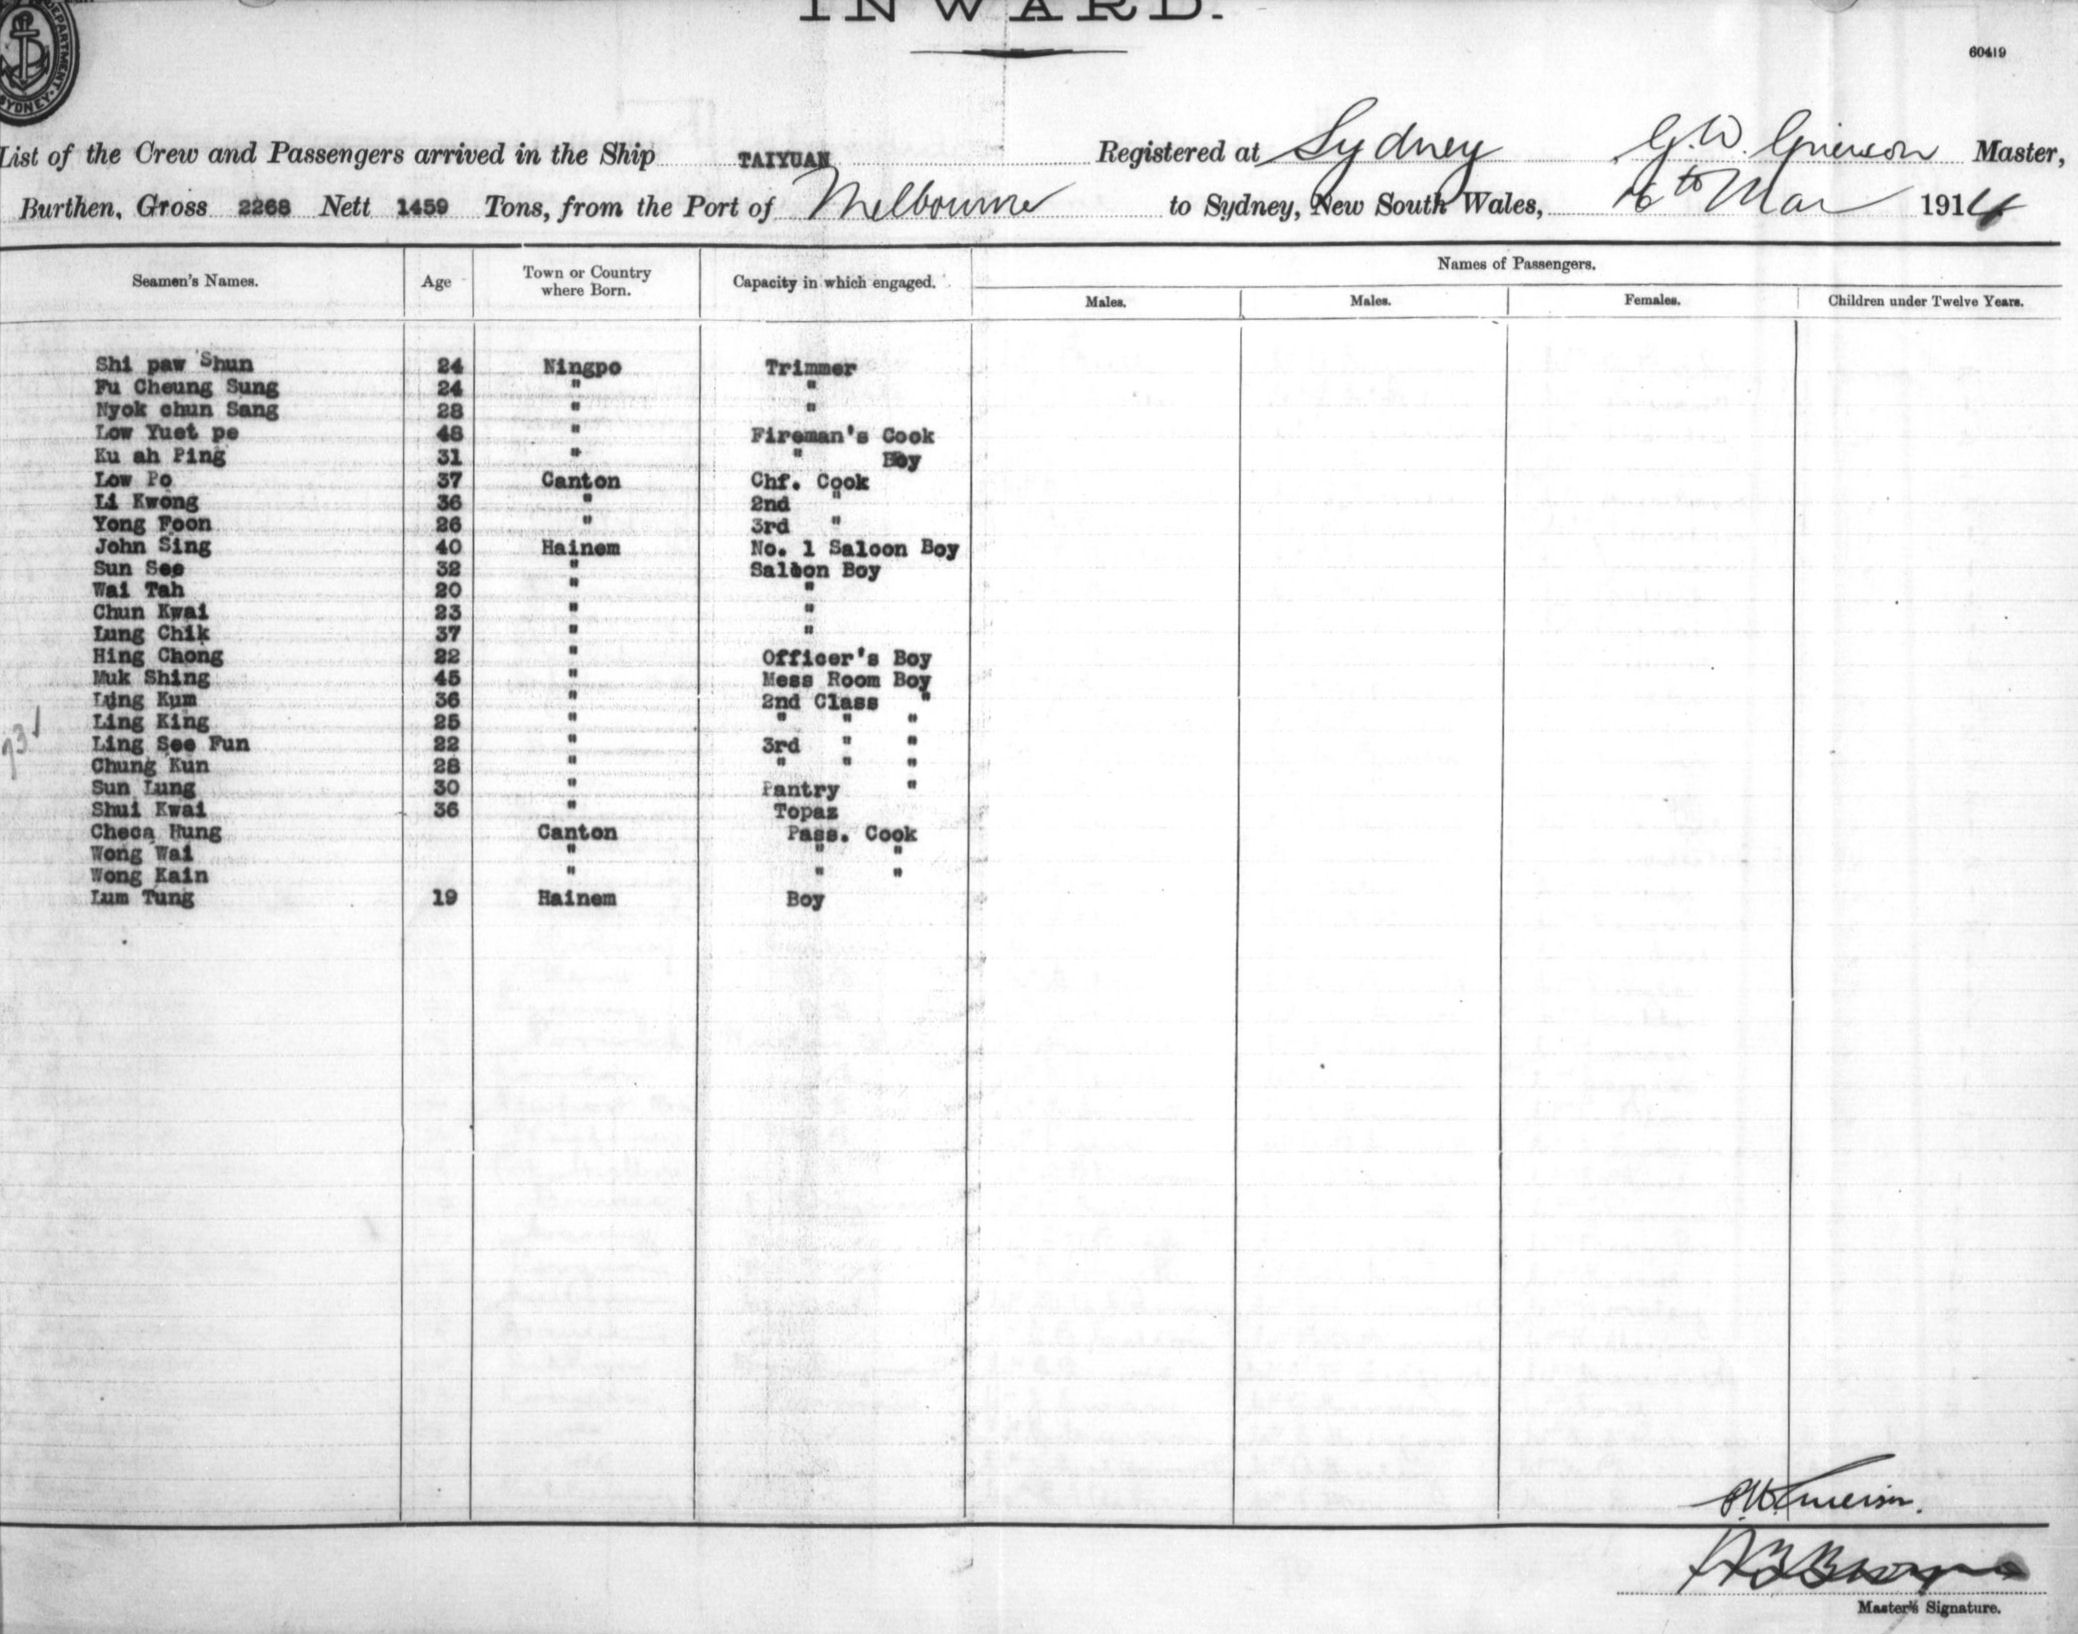 INWARD.
DEPARTMENT. SYDNEY.
60419
List of the Crew and Passengers arrived in the Ship TAIYUAN Registered at Sydney G.W. Grierson Master,
Burthen, Gross 2268 Nett 1459 Tons, from the Port of Melbourne to Sydney, New South Wales, 16th Mar 1914
Names of Passengers.
Seamen's Names. Age Town or Country where Born. Capacity in which engaged. Males. Males. Females. Children under Twelve Years.
Shi paw Shun 24 Ningpo Trimmer
Fu Cheung Sung 24 " "
Nyok chun Sang 28 " "
Low Yuet pe 48 " Fireman's Cook
Ku ah Ping 31 " " Boy
Low Po 37 Canton Chf. Cook
Li Kwong 36 " 2nd "
Yong Foon 26 " 3rd "
John Sing 40 Hainem No. 1 Saloon Boy
Sun See 32 " Saloon Boy
Wai Tah 20 " "
Chun Kwai 23 " "
Lung Chik 37 " "
Hing Chong 22 " Officer's Boy
Muk Shing 45 " Mess Room Boy
Ling Kum 36 " 2nd Class "
Ling King 25 " " " "
Ling See Fun 22 " 3rd " "
Chung Kun 28 " " " "
Sun Lung 30 " Pantry "
Shui Kwai 36 " Topaz
Checa Hung Canton Pass. Cook
Wong Wai " " "
Wong Kain " " "
Lum Tung 19 Hainem Boy
73
G.W. Grierson.
Master's Signature.